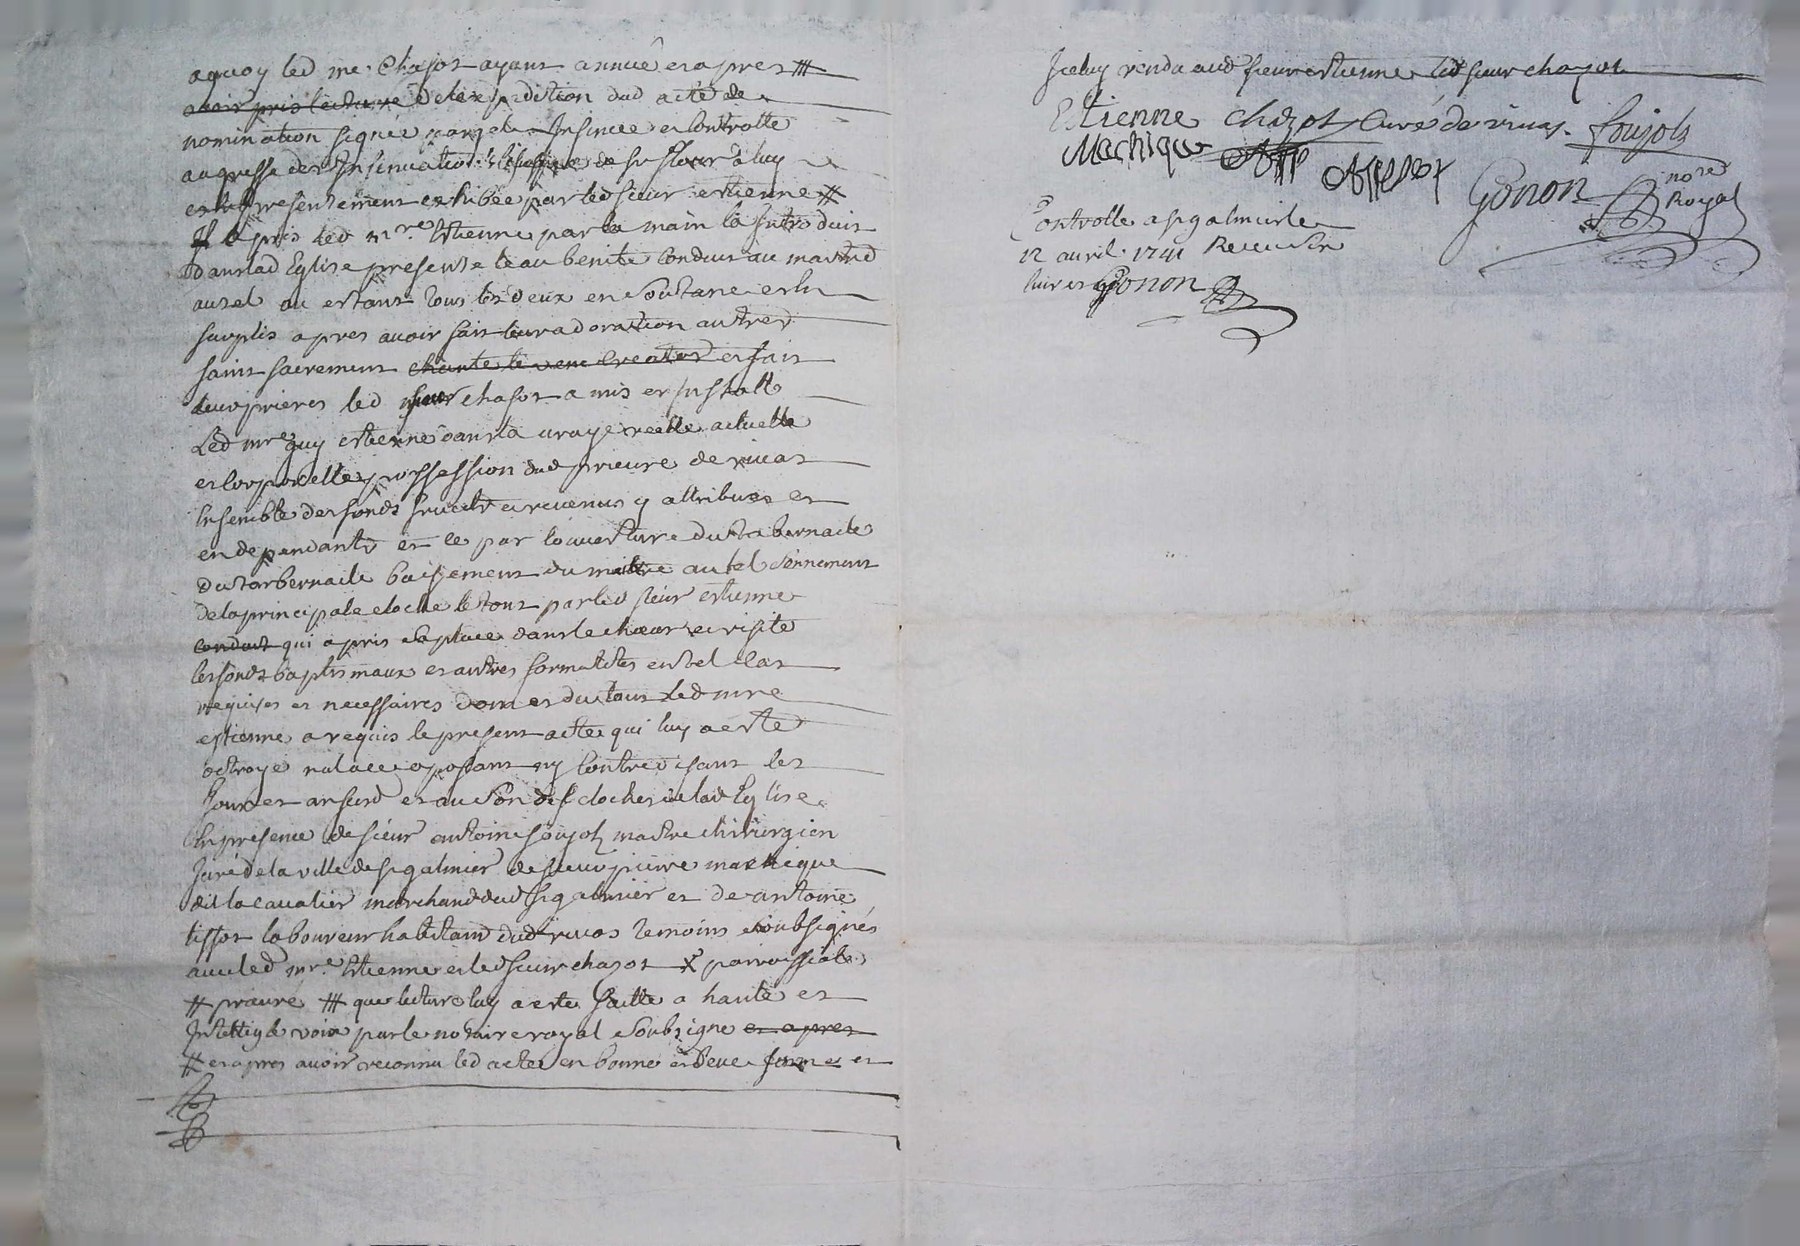 aquoy led mre Chazot ayant annué et apres #
avoir pris lecture de lexpedition dud acte de
nomination signée insinuee et controlle
au greffe des insinuations de st flour a luy
presentement exhibée par led sieur estienne #
Il a pris led mre. Estienne par la main la introduit
dans lad Eglise presenté leau benite conduit au maitre
autel ou estant tous les deux en soutane et en
surplis apres avoir fait leur adoration au tres
saint sacrement chanté le veni Creator et fait
leurs prieres led sieur chazot a mis et installé
Led mre guy estienne dans la vraye reelle actuelle
et corporelle possession dud prieure de rivas
Ensemble des fonds fruits et revenus y attribués et
en dependants et ce par louverture du tabernacle
du tabernacle baisement du maitre autel sonnement
de la principale cloche le tout par led sieur estienne
conduit qui a pris sa place dans le choeur et visite
les fonds baptismaux et autres formalités en tel cas
requises et necessaires dont et du tout Led mre
estienne a requis le present acte qui luy a esté
octroye nul ace oposant ny contredisant les
jour et an susd et au son des cloches de lad Eglise
En presence de sieur antoine foujols maitre chirurgien
juré de la ville de st galmier de sieur pierre machique
dit la cavalier marchand dud st galmier et de antoine
tissot laboureur habitant dud rivas temoins soubsignés
avec led mre. Estienne et led sieur chazot X parroissiale
# prieuré # que lecture luy a esté faitte a haute et
Intelligible voix par le notaire royal soubsigne et apres
# et apres avoir reconnu led acte en bonne et deue forme et
Iceluy rendu aud sieur estienne led sieur chazot
Estienne Chazot Curé de rivas. foujols
Machique
Gonon nore Royal
Controlle a st galmier le
12 avril 1741 Recu six
livres Gonon